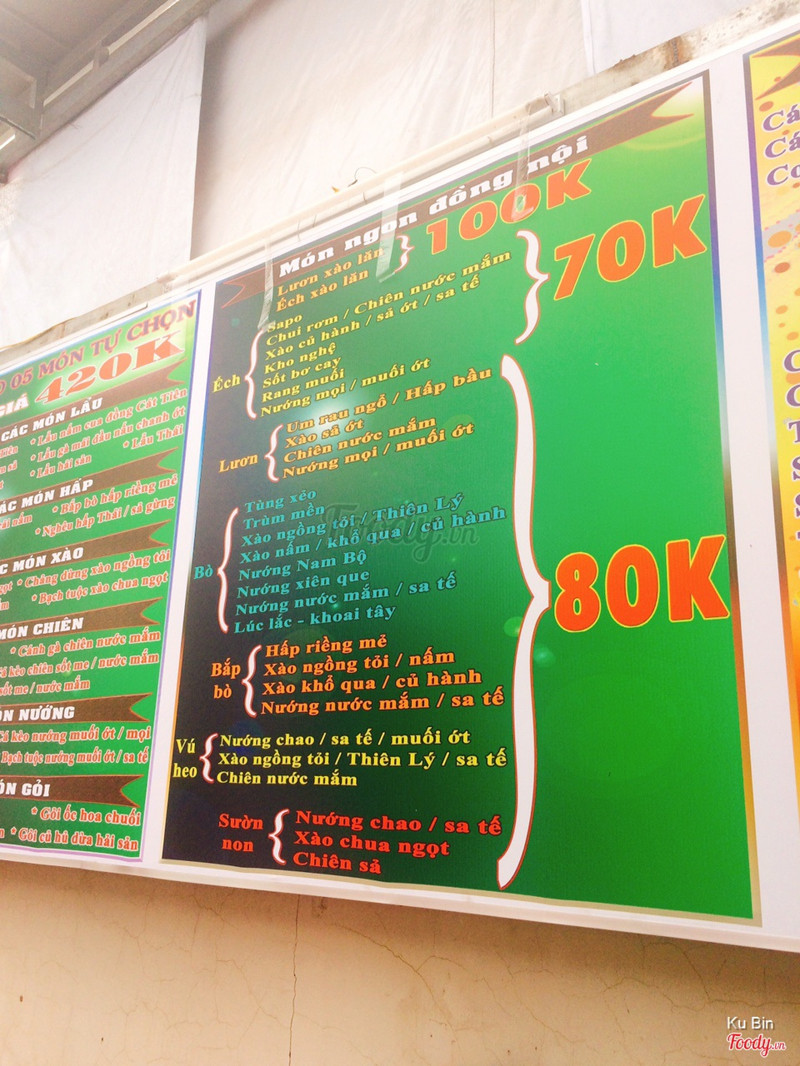 05 MÓN TỰ CHỌN
GIÁ 420K
CÁC MÓN LẨU
* Lẩu nấm cua đồng Cát Tiên
* Lẩu gà mái dầu nấu chanh ớt
* Lẩu hải sản
* Lẩu Thái
MÓN HẤP
* Bắp bò hấp riềng mẻ
* Nghêu hấp Thái / sả gừng
MÓN XÀO
* Chẳng dừng xào ngồng tỏi
* Bạch tuộc xào chua ngọt
MÓN CHIÊN
* Cánh gà chiên nước mắm
kèo chiên sốt me / nước mắm
sốt me / nước mắm
NƯỚNG
kèo nướng muối ớt / mọi
Bạch tuộc nướng muối ớt / sa tế
GỎI
* Gỏi ốc hoa chuối
* Gỏi củ hủ dừa hải sản
Món ngon đồng nội
Lươn xào lăn
Ếch xào lăn
100K
Ếch
Sapo
Chui rơm / Chiên nước mắm
Xào củ hành / sả ớt / sa tế
Kho nghệ
Sốt bơ cay
Rang muối
Nướng mọi / muối ớt
70K
Lươn
Um rau ngổ / Hấp bầu
Xào sả ớt
Chiên nước mắm
Nướng mọi / muối ớt
Bò
Tùng xẻo
Trùm mền
Xào ngồng tỏi / Thiên Lý
Xào nấm / khổ qua / củ hành
Nướng Nam Bộ
Nướng xiên que
Nướng nước mắm / sa tế
Lúc lắc - khoai tây
80K
Bắp bò
Hấp riềng mẻ
Xào ngồng tỏi / nấm
Xào khổ qua / củ hành
Nướng nước mắm / sa tế
Vú heo
Nướng chao / sa tế / muối ớt
Xào ngồng tỏi / Thiên Lý / sa tế
Chiên nước mắm
Sườn non
Nướng chao / sa tế
Xào chua ngọt
Chiên sả
Foody.vn
Ku Bin
Foody.vn